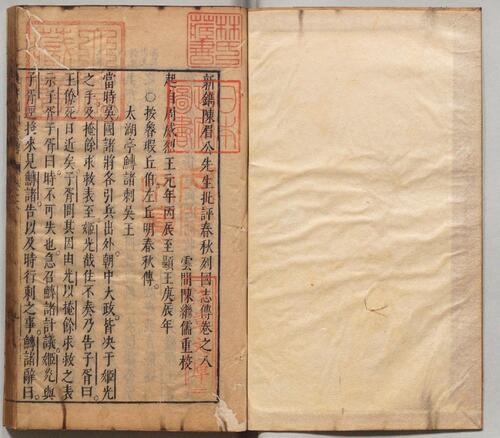 新鐫陳眉公先生批評春秋列國志傳卷之八
雲間陳繼儒重校
起自周威烈王元年丙辰至顯王庚辰年
○按魯瑕丘伯左丘明春秋傳
太湖亭鱄諸刺吳王
當時吳國諸將各引兵出外。朝中大政。皆決于姬光
之手及掩餘求救表至姬光截住不奏乃告子胥曰。
王僚死日近矣子胥問其因由光以掩餘求救之表
示子胥子胥曰時不可失也急召鱄諸計議姬光與
子胥迎接來見鱄諸告以及時行刺之事。鱄諸辭曰。
林氏藏書
日本
圖書